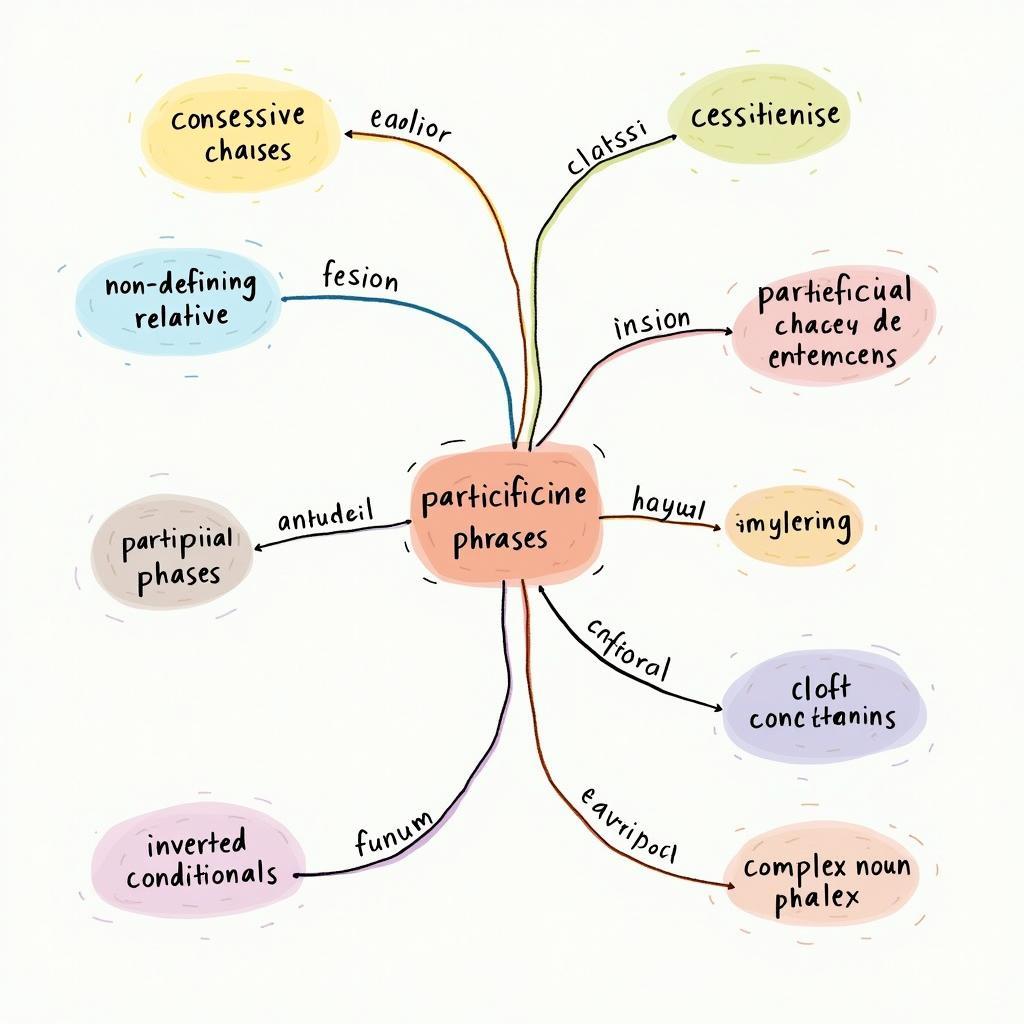 consessive
chaises
eaolior
clatssi
cessitienise
non-defining
relative
fesion
insion
partieficual
chacey de
entemcens
particificine
phrases
antudeil
partipiial
phases
hayual
imylering
cnfioral
cloft
concttanins
inverted
conditionals
funum
eavripocl
complex noun
phalex